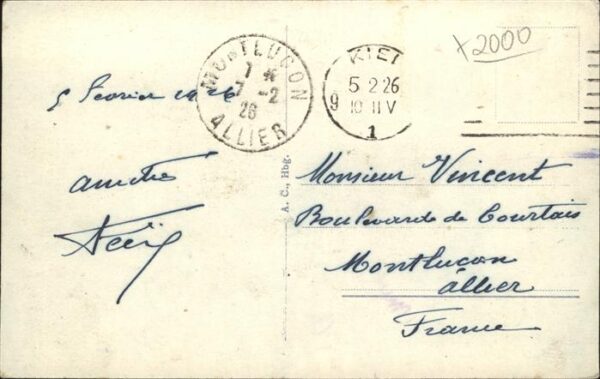 x2000
MONTLUÇON
7 *
7 -2
26
ALLIER
KIEL
5 2 26
9 10-11 V
1
5 février 1926
amitiés
A. C., Hbg.
Monsieur Vincent
Boulevard de Courtais
Montluçon
Allier
France